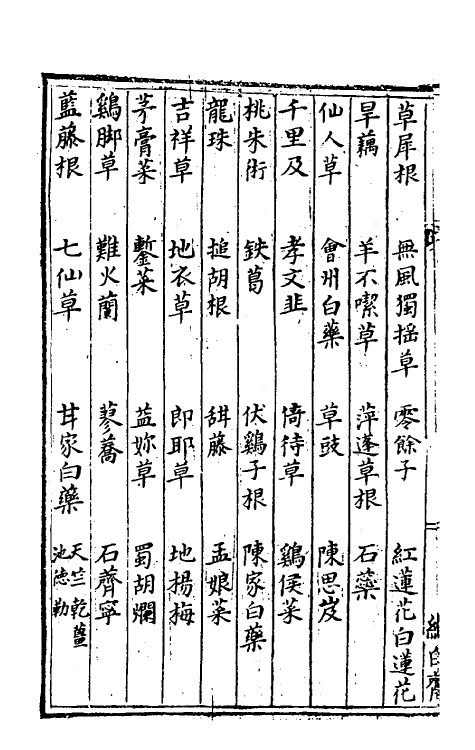 草犀根　無風獨揺草　零餘子　紅蓮花白蓮花
旱藕　羊不喫草　萍蓬草根　石蘂
仙人草　會州白藥　草豉　陳思岌
千里及　孝文韭　倚待草　鷄侯菜
桃朱術　鉄葛　伏鷄子根　陳家白藥
龍珠　搥胡根　甜藤　孟娘菜
吉祥草　地衣草　即耶草　地揚梅
茅膏菜　鏨菜　益妳草　蜀胡爛
鷄脚草　難火蘭　蓼蕎　石薺寧
藍藤根　七仙草　甘家白藥　天竺乾薑
池德勒